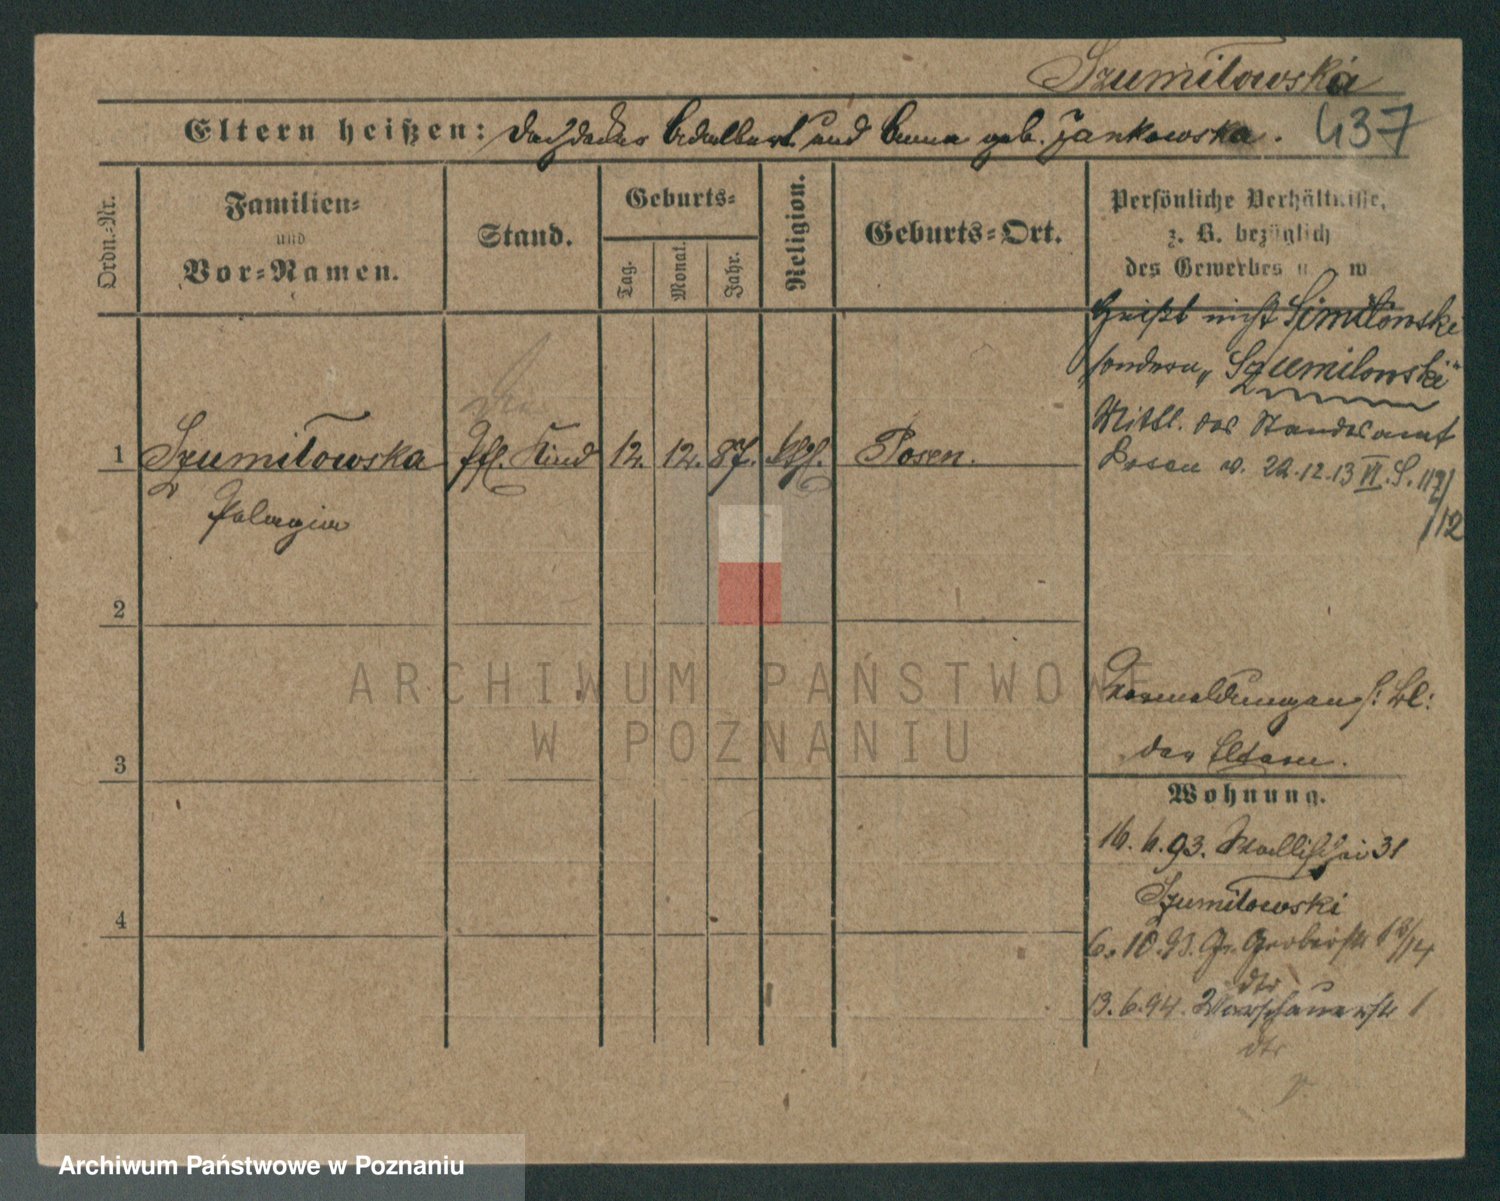 Szumiłowska
Eltern heißen: Dachdecker Adalbert und Anna geb. Jankowska.
437
Ordn.-Nr.
Familien-
und
Vor-Namen.
Stand.
Geburts-
Tag.
Monat.
Jahr.
Religion.
Geburts-Ort.
Persönliche Verhältnisse,
z. B. bezüglich
des Gewerbes u. w
Heißt nicht Simiłowski
sondern „Szumilowski"
Mittl. des Standesamt
Posen v. 22.12.13 VI. S. 117/
/12
1 Szumiłowska
Pfl. Kind
12. 12. 87. kath.
Posen.
Pelagia
2
3
4
Vermeldungen s: Bl:
der Eltern.
Wohnung.
16. 6. 93. Wallischei 31
Szumiłowski
6. 10. 93. Gr. Gerberstr 13/14
dto
13. 6. 94. Warschauerstr 1
dto
ARCHIWUM PAŃSTWOWE
W POZNANIU
Archiwum Państwowe w Poznaniu